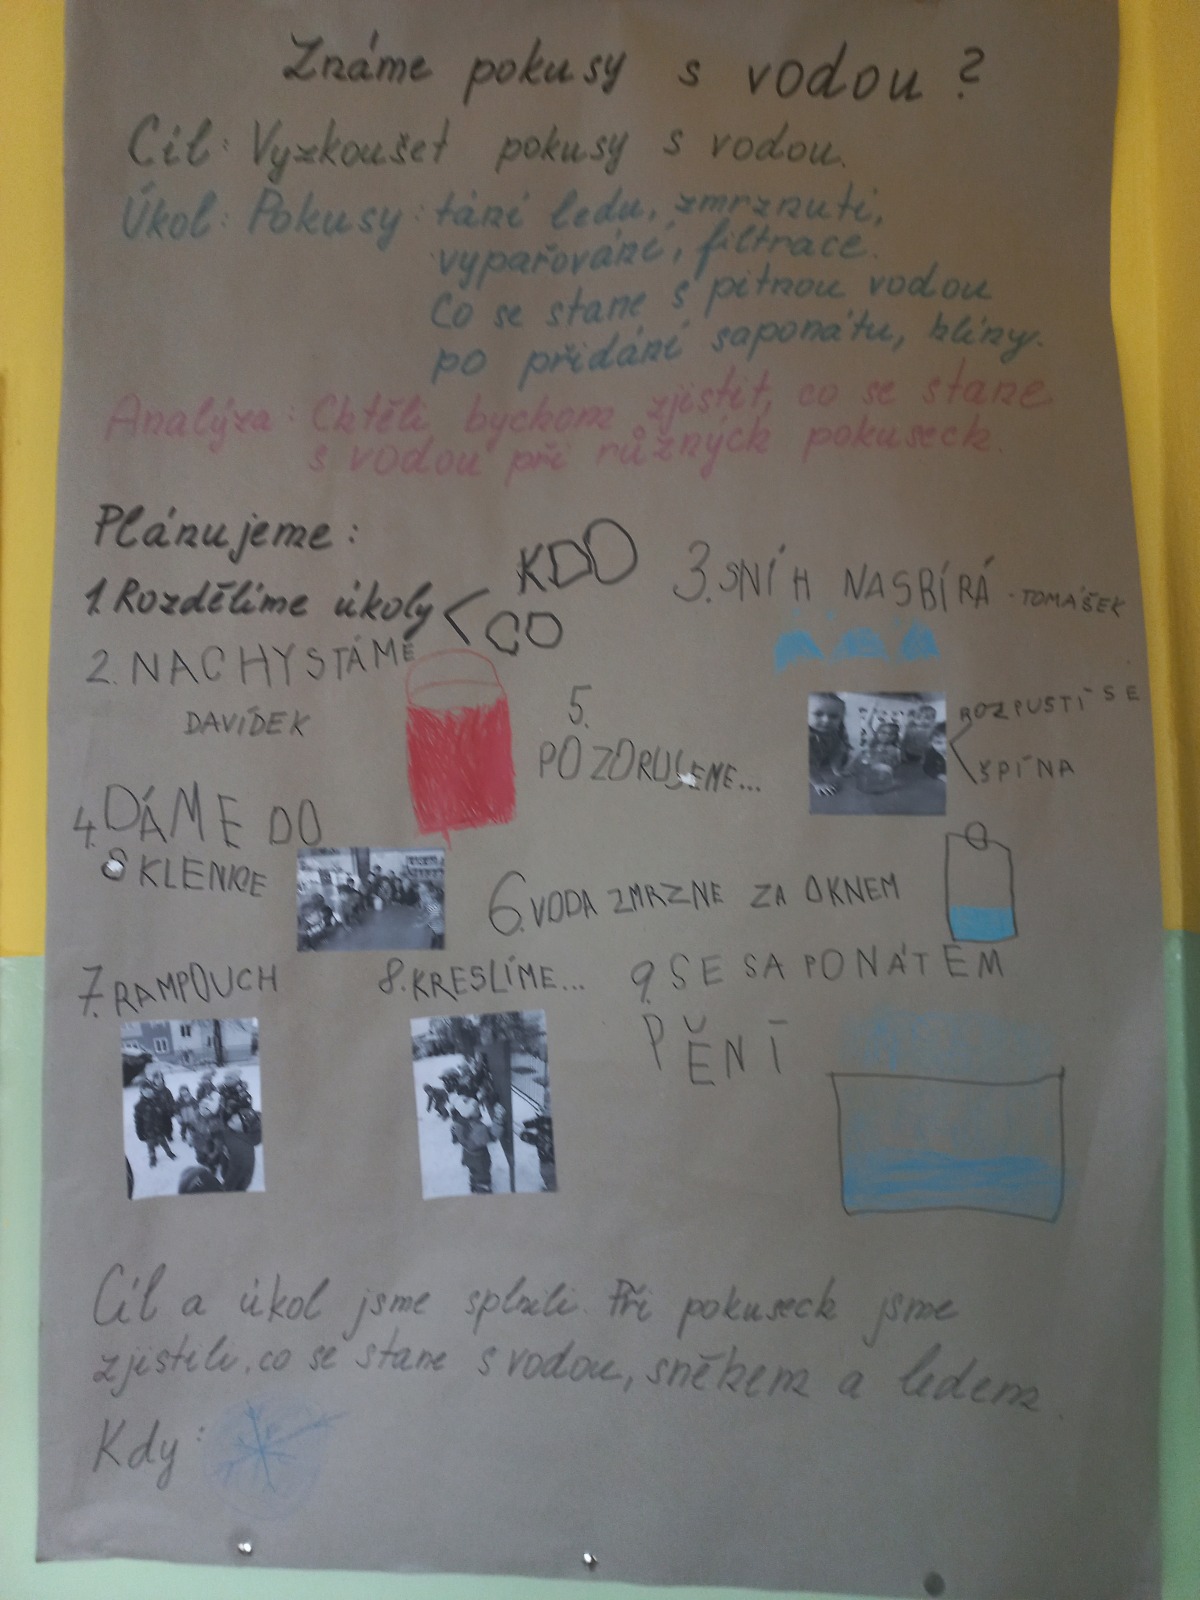 Známe pokusy s vodou?
Cíl: Vyzkoušet pokusy s vodou.
Úkol: Pokusy: tání ledu, zmrznutí,
vypařování, filtrace.
Co se stane s pitnou vodou
po přidání saponátu, hlíny.
Analýza: Chtěli bychom zjistit, co se stane
s vodou při různých pokusech.
Plánujeme:
1. Rozdělíme úkoly
KDO
CO
2. NACHYSTÁME
DAVÍDEK
3. SNÍH NASBÍRÁ - TOMÁŠEK
ROZPUSTÍ SE
ŠPÍNA
4. DÁME DO
SKLENICE
5.
POZORUJEME...
6. VODA ZMRZNE ZA OKNEM
7. RAMPOUCH
8. KRESLÍME...
9. SE SAPONÁTEM
PĚNÍ
Cíl a úkol jsme splnili. Při pokusech jsme
zjistili, co se stane s vodou, sněhem a ledem.
Kdy: